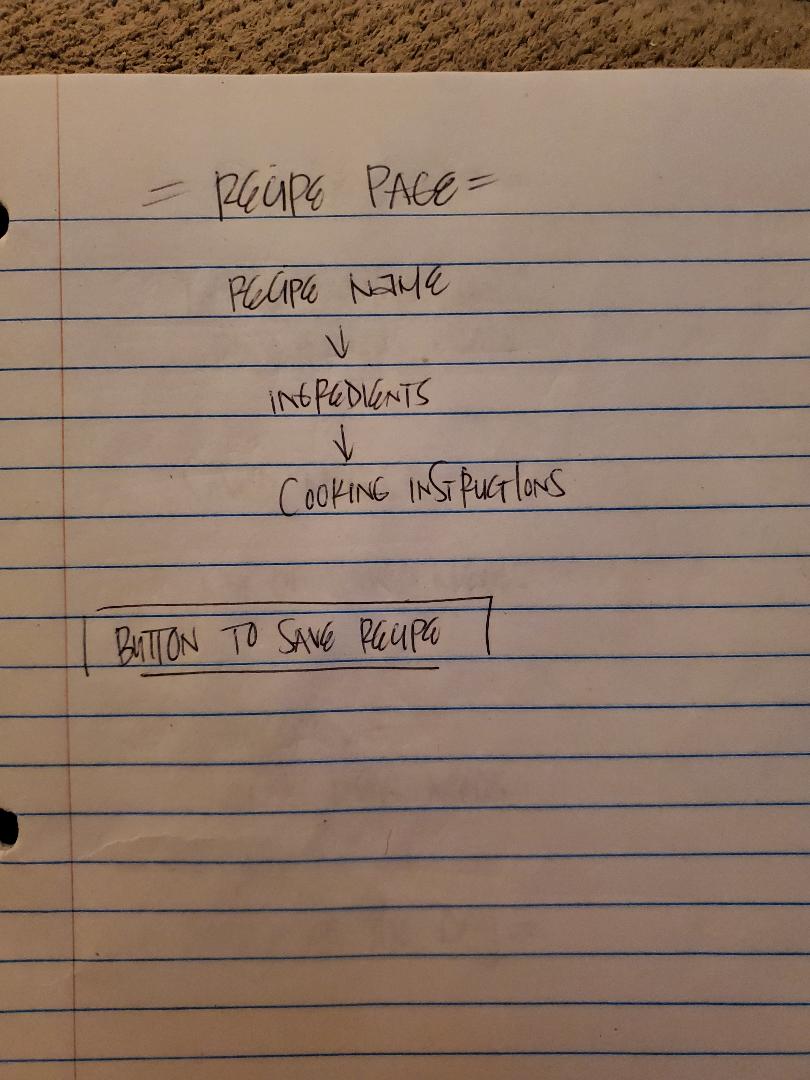 = RECIPE PAGE =
RECIPE NAME
↓
INGREDIENTS
↓
COOKING INSTRUCTIONS
BUTTON TO SAVE RECIPE